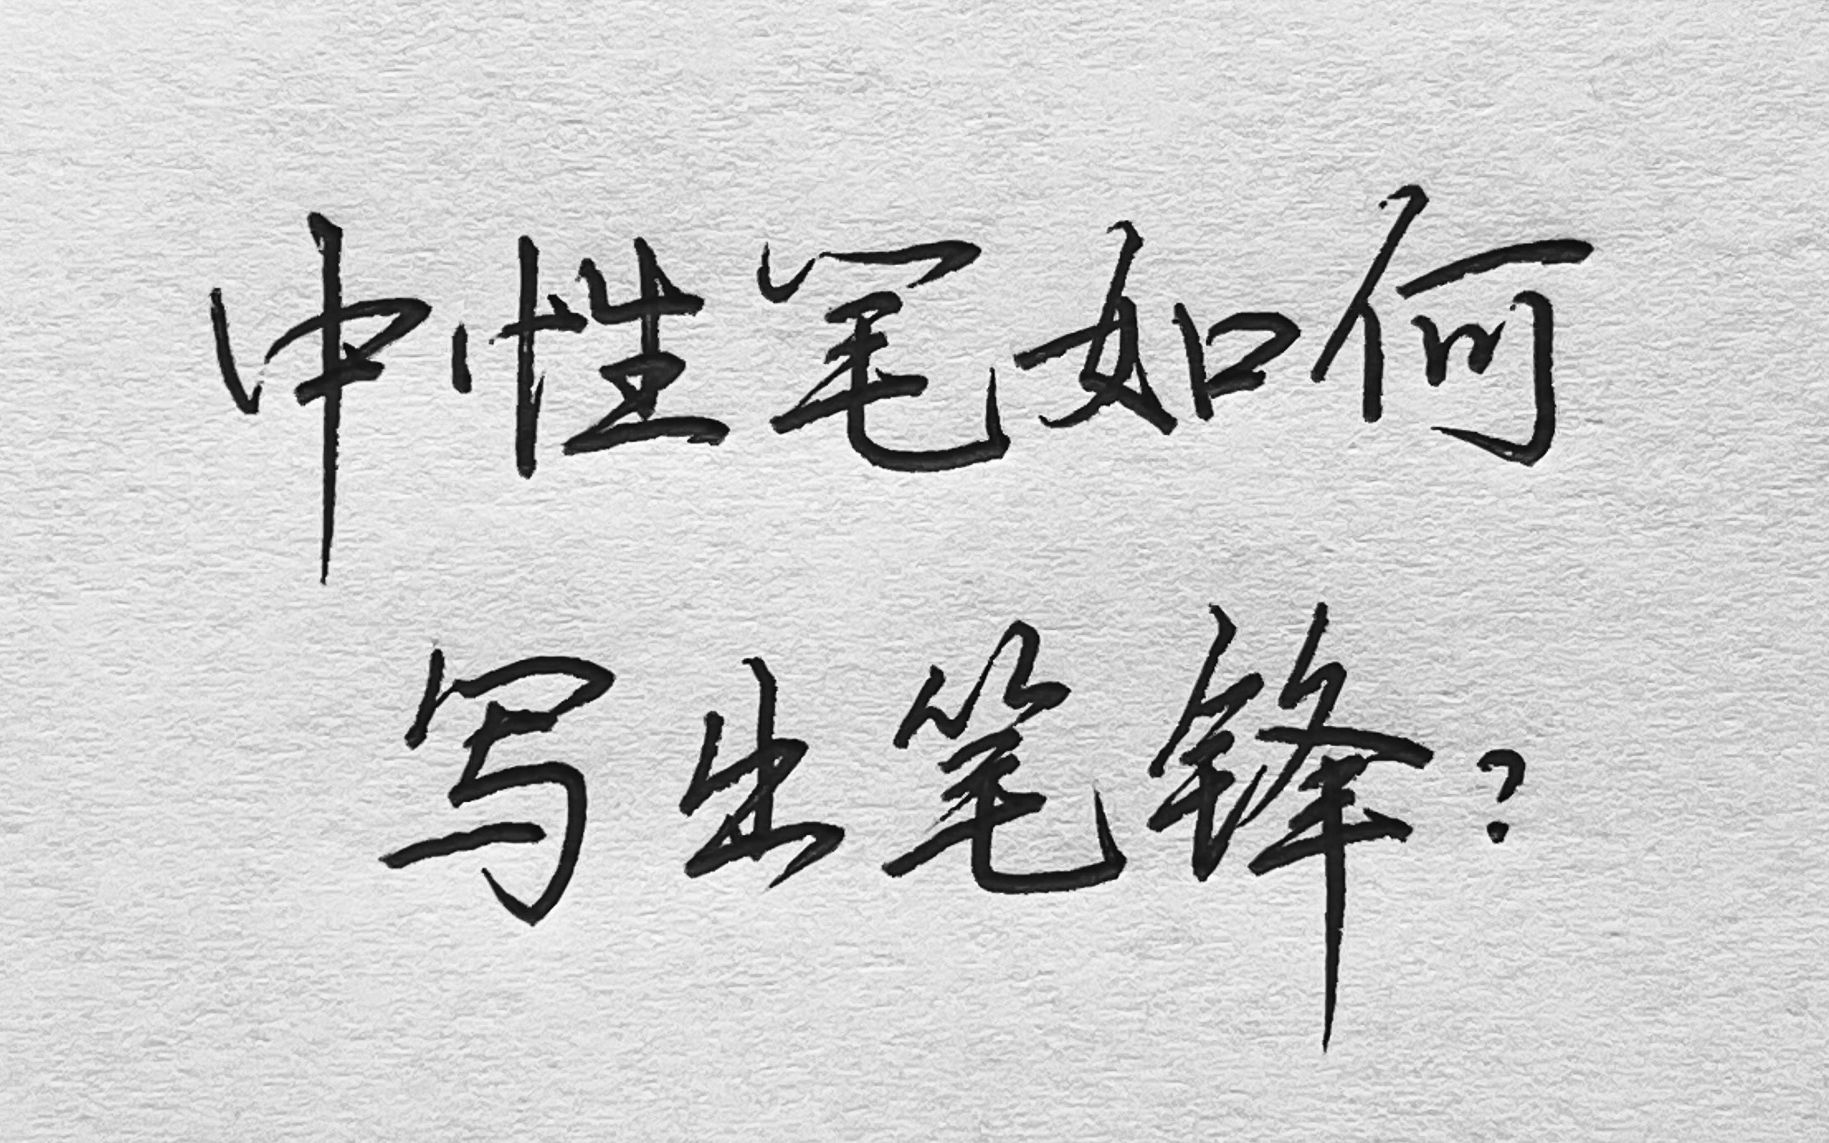 中性笔如何
写出笔锋?